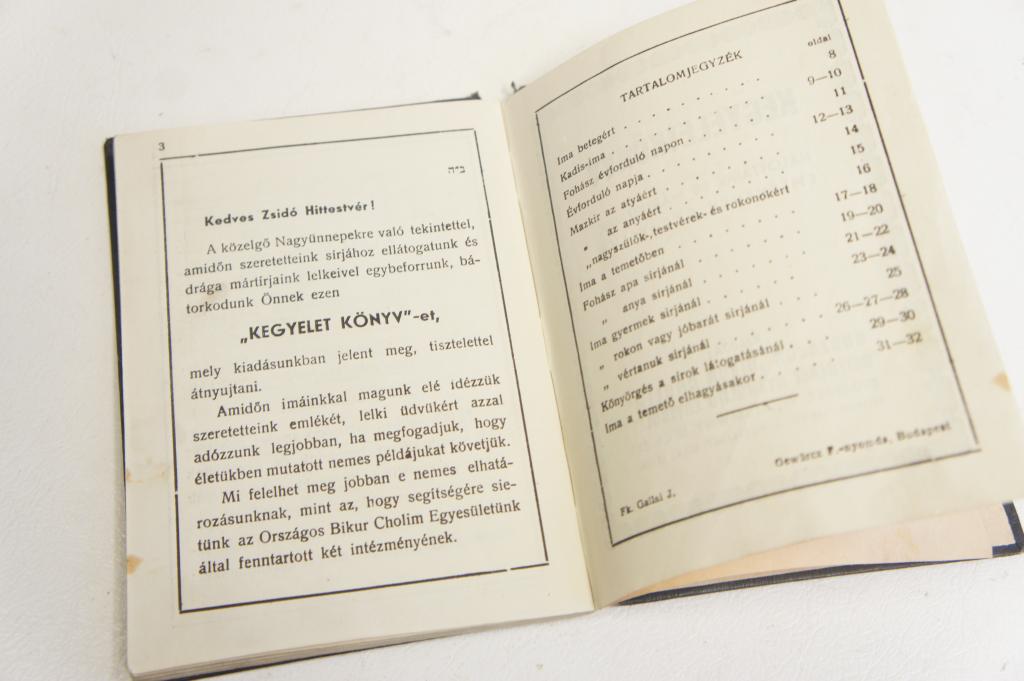 3
ב״ה
Kedves Zsidó Hittestvér!
A közelgő Nagyünnepekre való tekintettel,
amidőn szeretetteink sirjához ellátogatunk és
drága mártirjaink lelkeivel egybeforrunk, bá-
torkodunk Önnek ezen
„KEGYELET KÖNYV”-et,
mely kiadásunkban jelent meg, tisztelettel
átnyujtani.
Amidőn imáinkkal magunk elé idézzük
szeretetteink emlékét, lelki üdvükért azzal
adózzunk legjobban, ha megfogadjuk, hogy
életükben mutatott nemes példájukat követjük.
Mi felelhet meg jobban e nemes elhatá-
rozásunknak, mint az, hogy segítségére sie-
tünk az Országos Bikur Cholim Egyesületünk
által fenntartott két intézményének.
TARTALOMJEGYZÉK
oldal
Ima betegért . . . . . . . . 8
Kadis-ima . . . . . . . . 9—10
Fohász évforduló napon . . . . . 11
Évforduló napja . . . . . . . 12—13
Mazkir az atyáért . . . . . . 14
" az anyáért . . . . . . 15
„nagyszülők-, testvérek- és rokonokért 16
Ima a temetőben . . . . . . 17—18
Fohász apa sirjánál . . . . . 19—20
„ anya sirjánál . . . . . 21—22
Ima gyermek sirjánál . . . . . 23—24
„ rokon vagy jóbarát sirjánál . . . 25
„ vértanuk sirjánál . . . . . 26—27—28
Könyörgés a sirok látogatásánál . . . 29—30
Ima a temető elhagyásakor . . . . 31—32
Fk. Gallai J.
Gewürcz F.-nyomda, Budapest